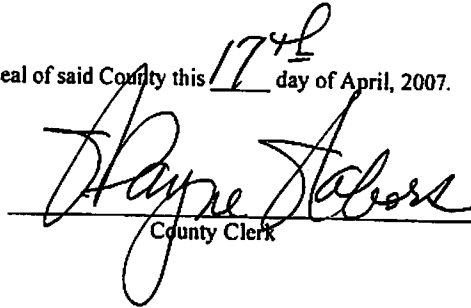 eal of said County this 17th day of April, 2007.
Wayne Nabors
County Clerk